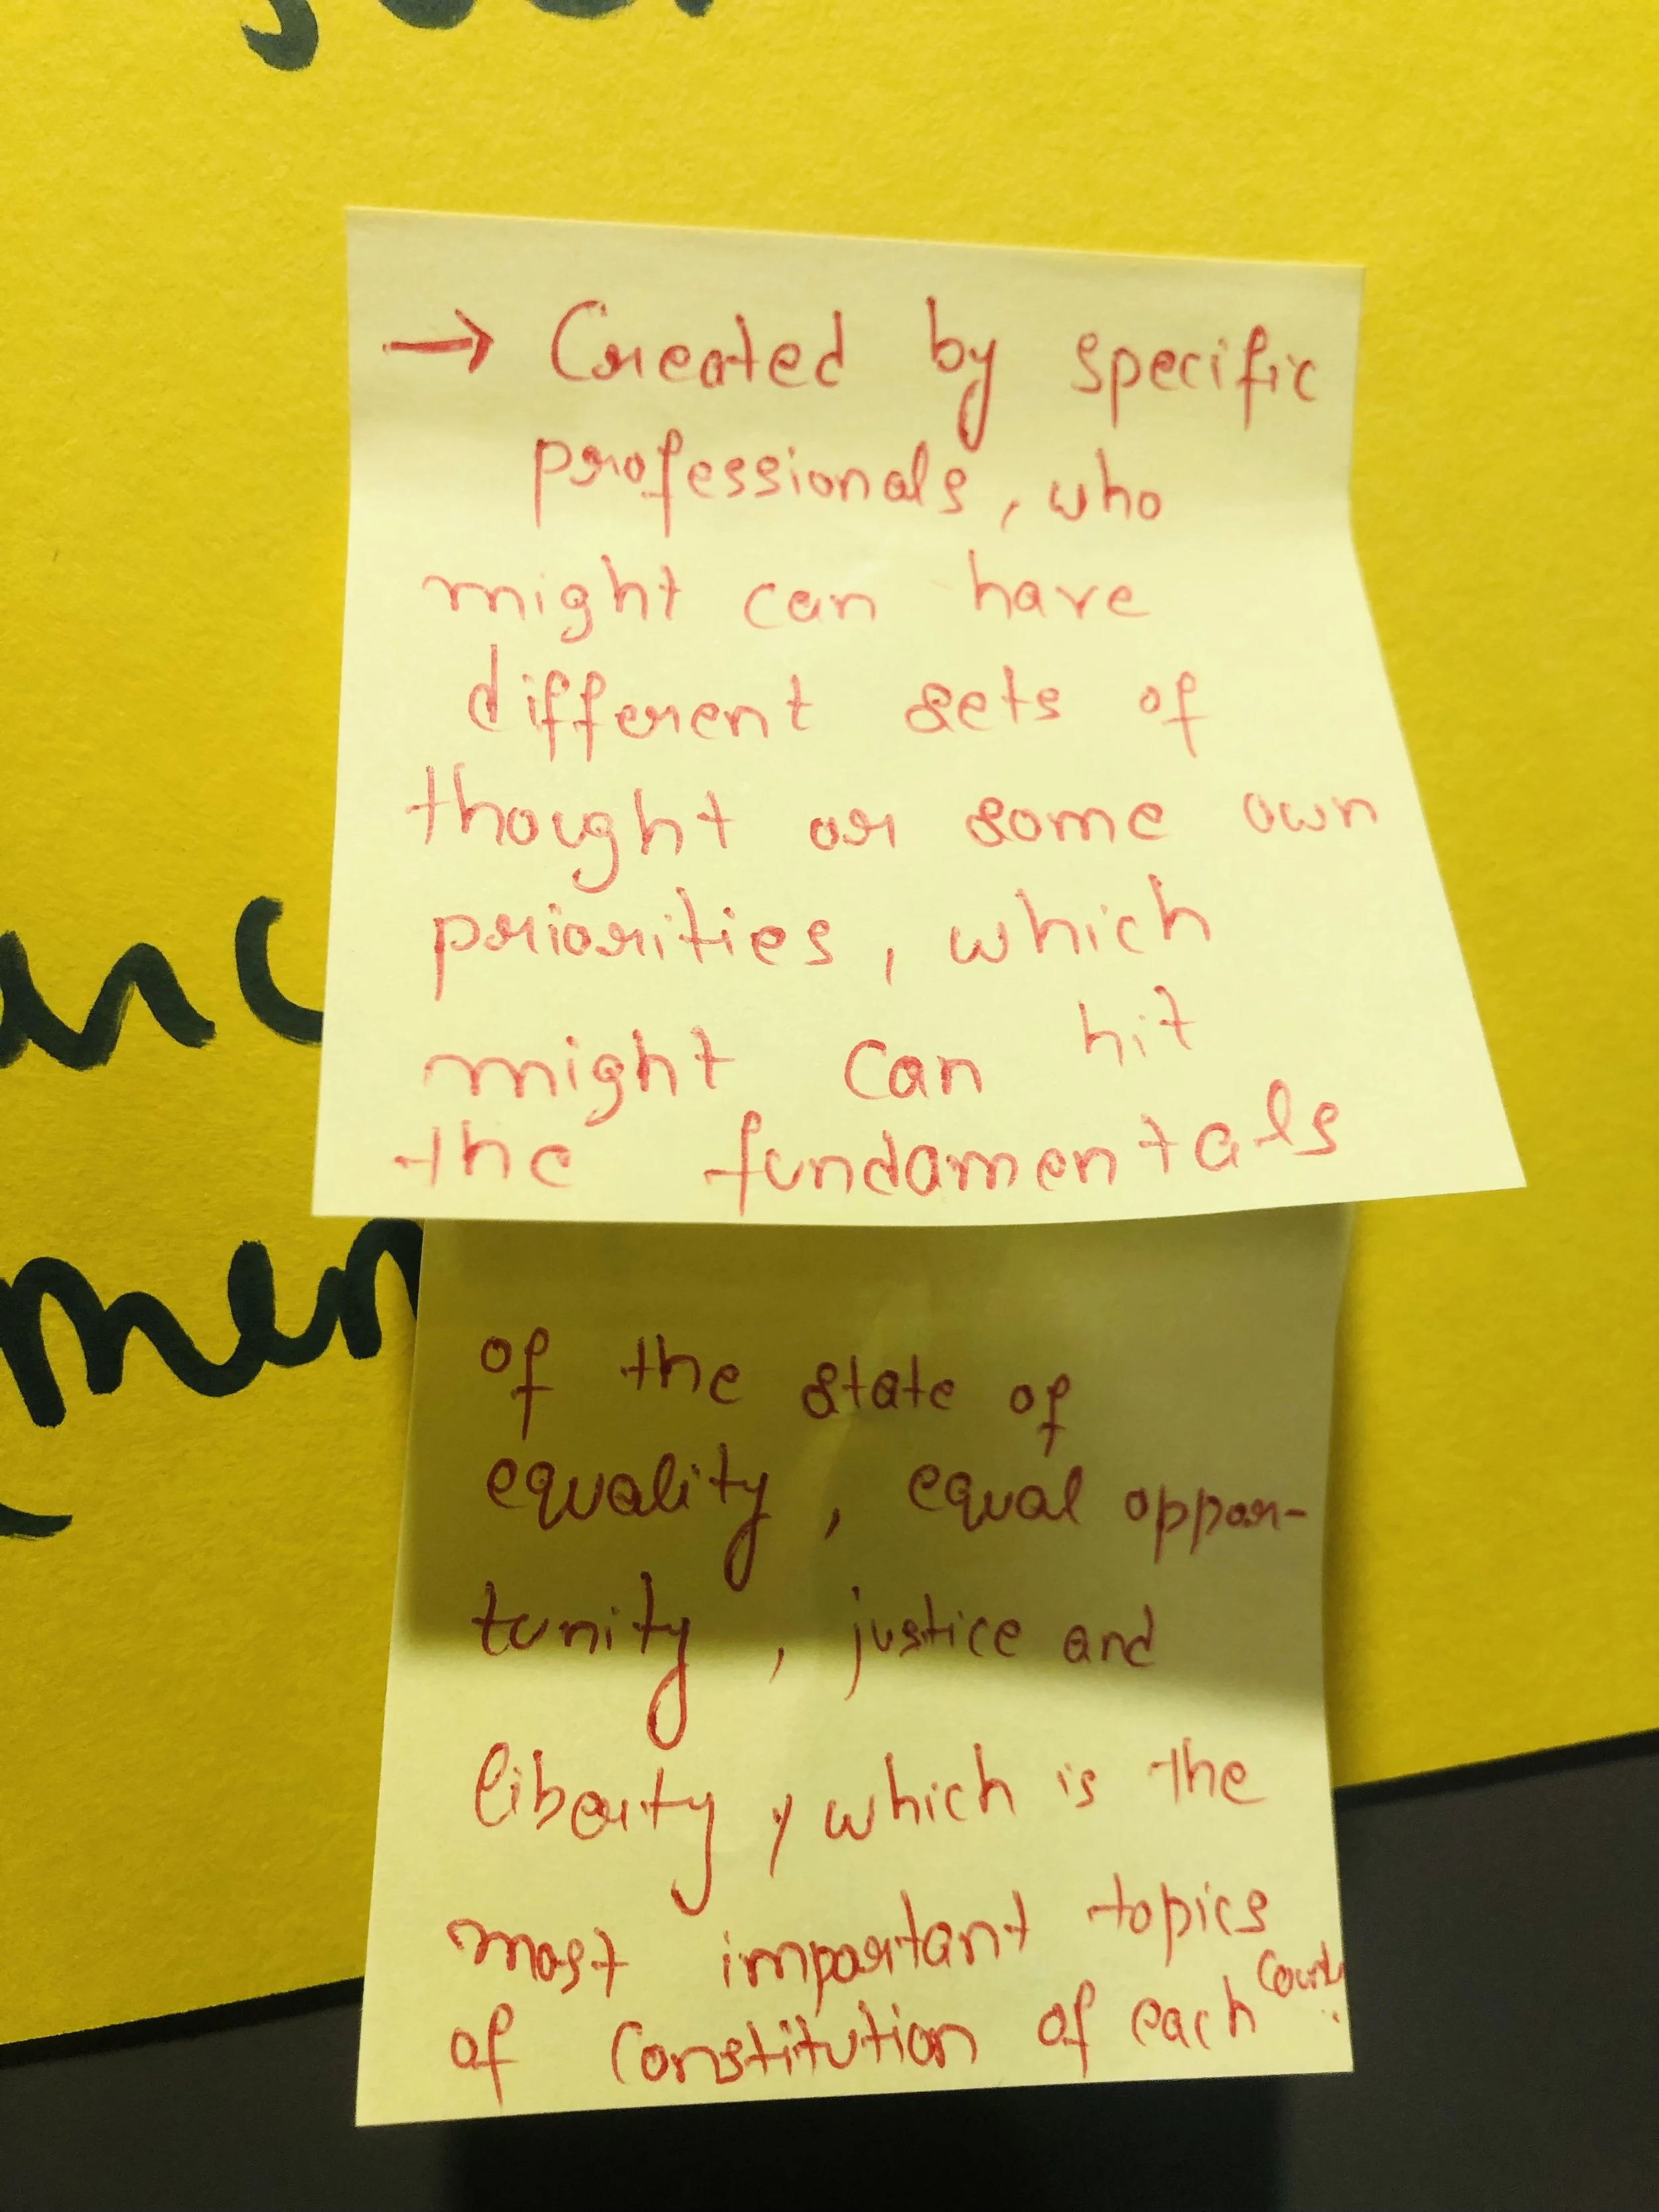 → Created by specific
professionals, who
might can have
different sets of
thought or some own
priorities, which
might can hit
the fundamentals
of the state of
equality, equal oppor-
tunity, justice and
liberty, which is the
most important topics
of constitution of each